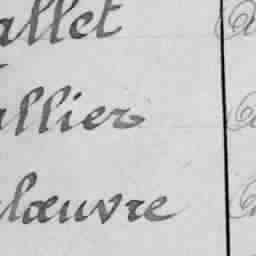 allet
llier
lœuvre